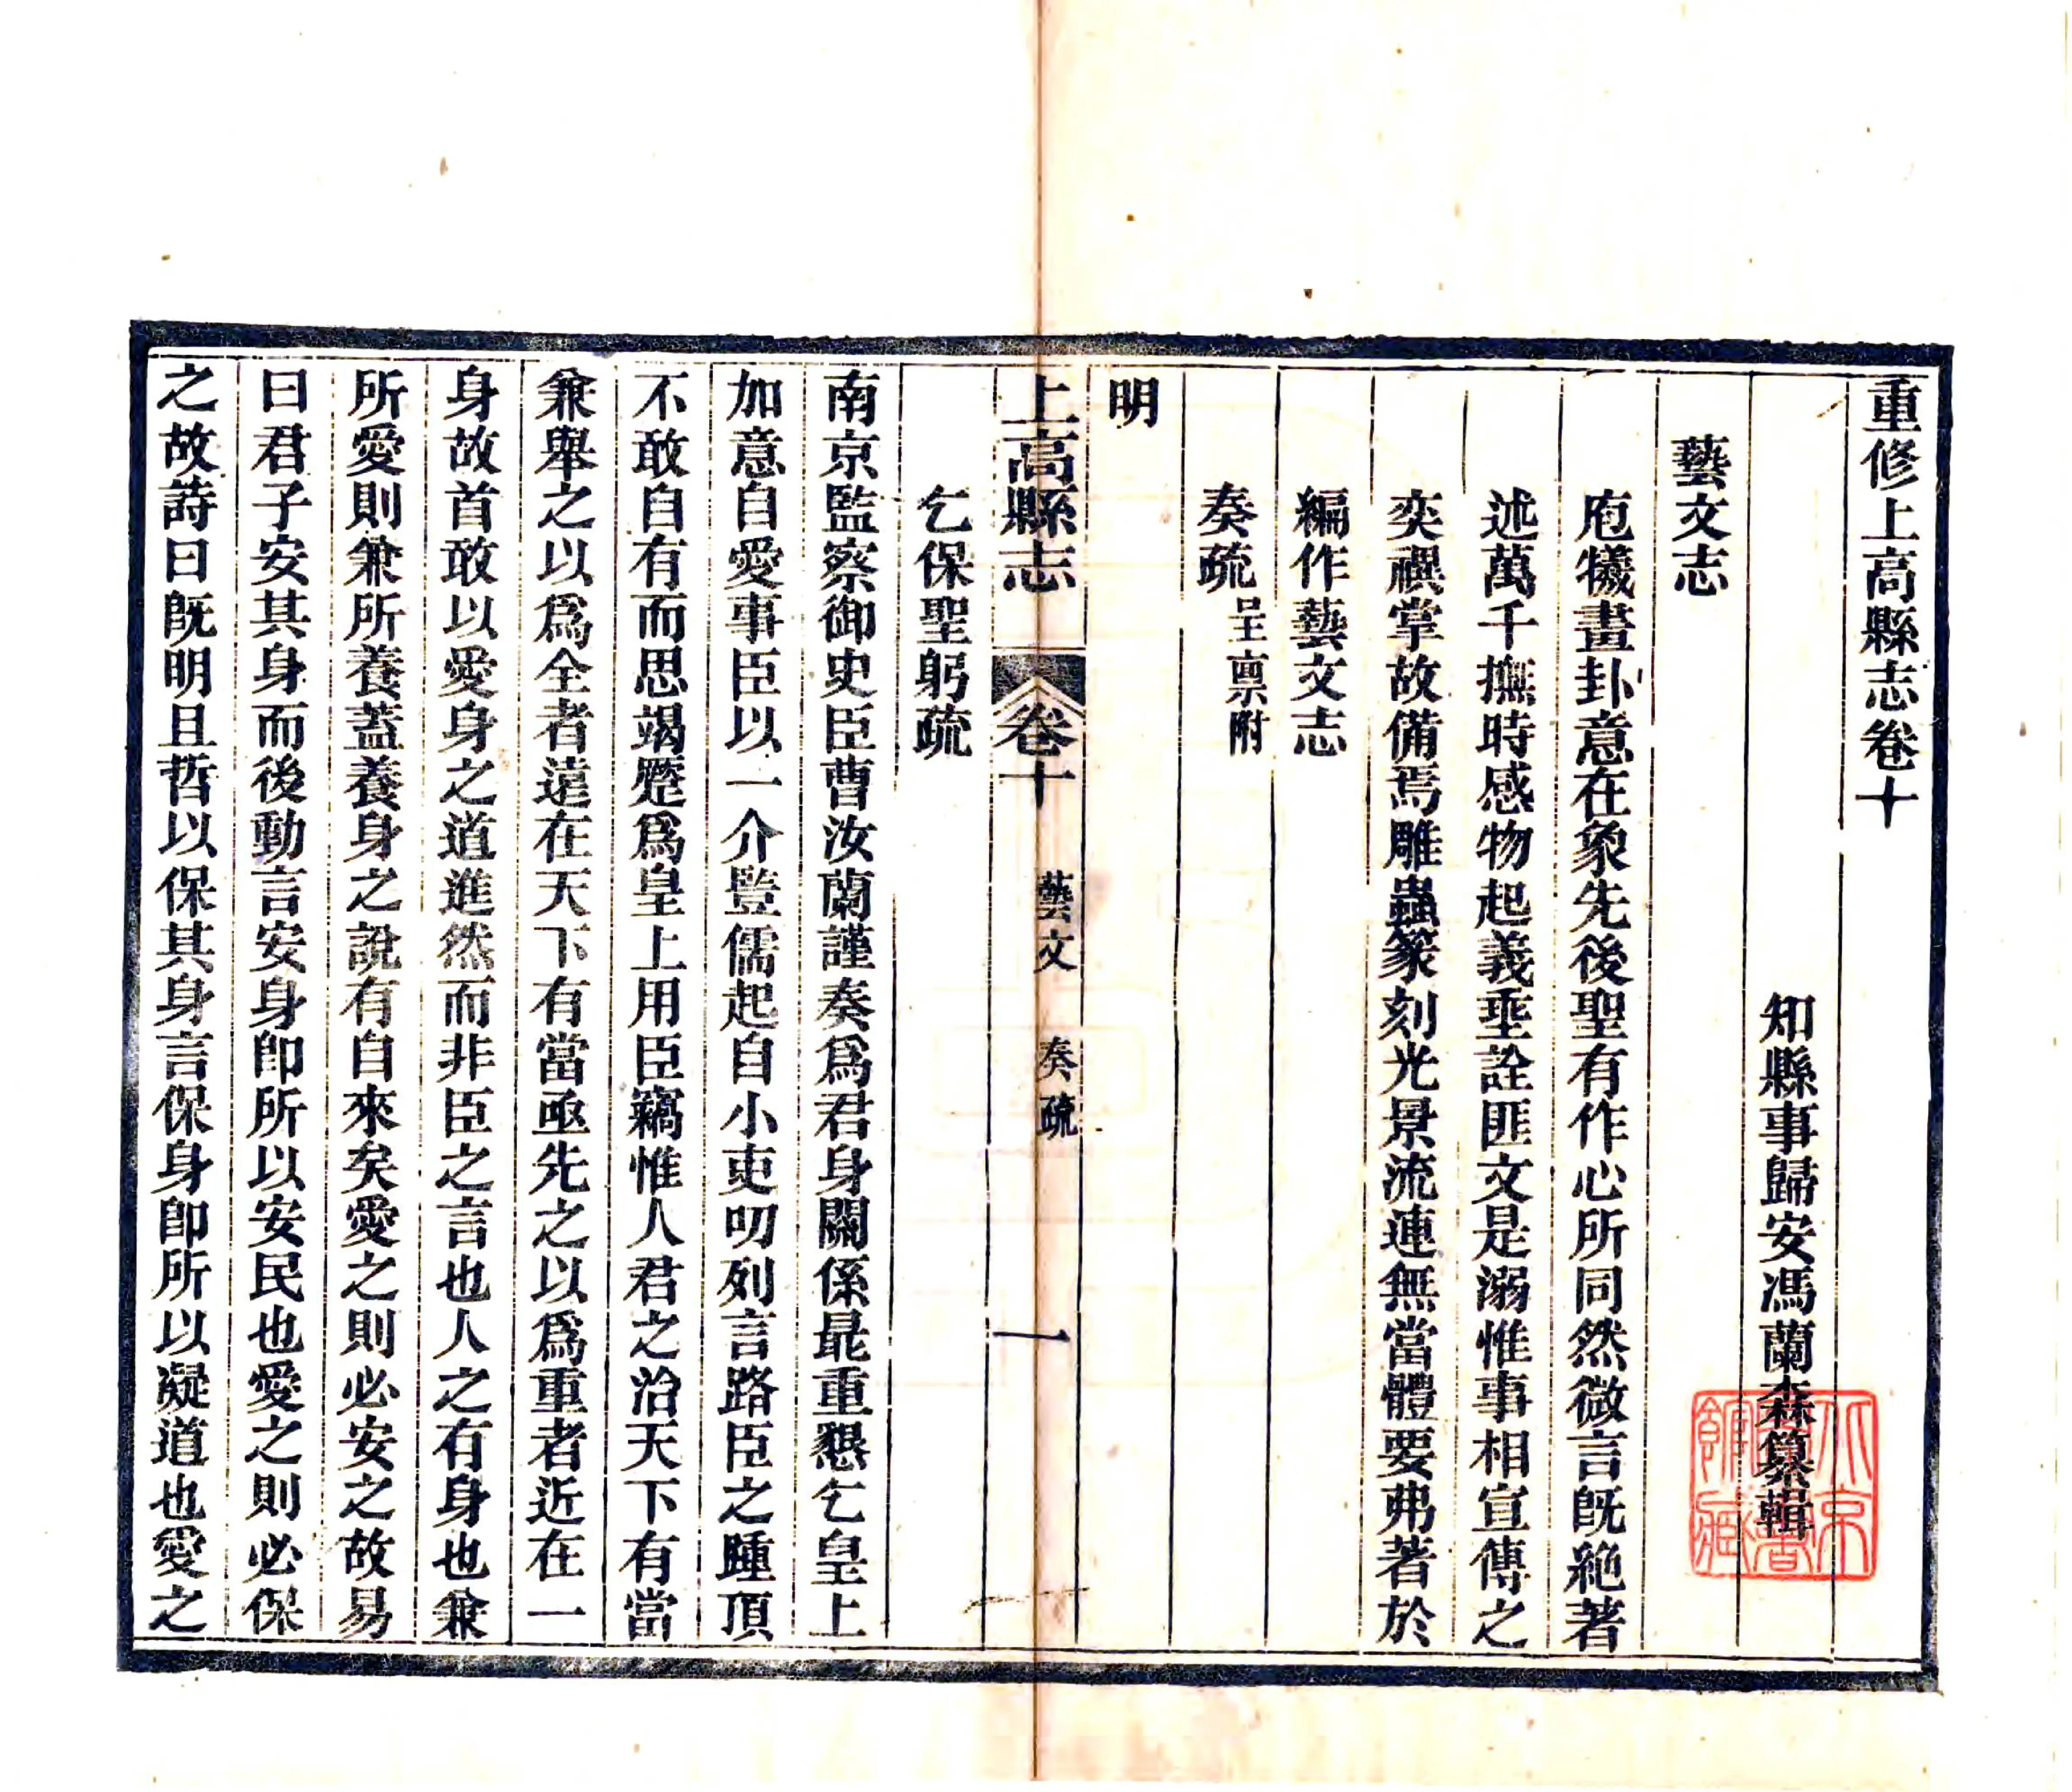 重修上高縣志卷十
知縣事歸安馮蘭森纂輯
藝文志
庖犧畫卦意在象先後聖有作心所同然微言旣絶著
述萬千撫時感物起義埀詮匪文是溺惟事相宣傳之
奕禩掌故備焉雕蟲篆刻光景流連無當體要弗著於
編作藝文志
奏疏呈稟附
明
上高縣志 卷十 藝文 奏疏 一
乞保聖躬疏
南京監察御史臣曹汝蘭謹奏爲君身關係最重懇乞皇上
加意自愛事臣以一介豎儒起自小吏叨列言路臣之踵頂
不敢自有而思竭蹷爲皇上用臣竊惟人君之治天下有當
兼舉之以爲全者遠在天下有當亟先之以爲重者近在一
身故首敢以愛身之道進然而非臣之言也人之有身也兼
所愛則兼所養蓋養身之說有自來矣愛之則必安之故易
曰君子安其身而後動言安身卽所以安民也愛之則必保
之故詩曰旣明且哲以保其身言保身卽所以凝道也愛之
北京
圖書
館藏